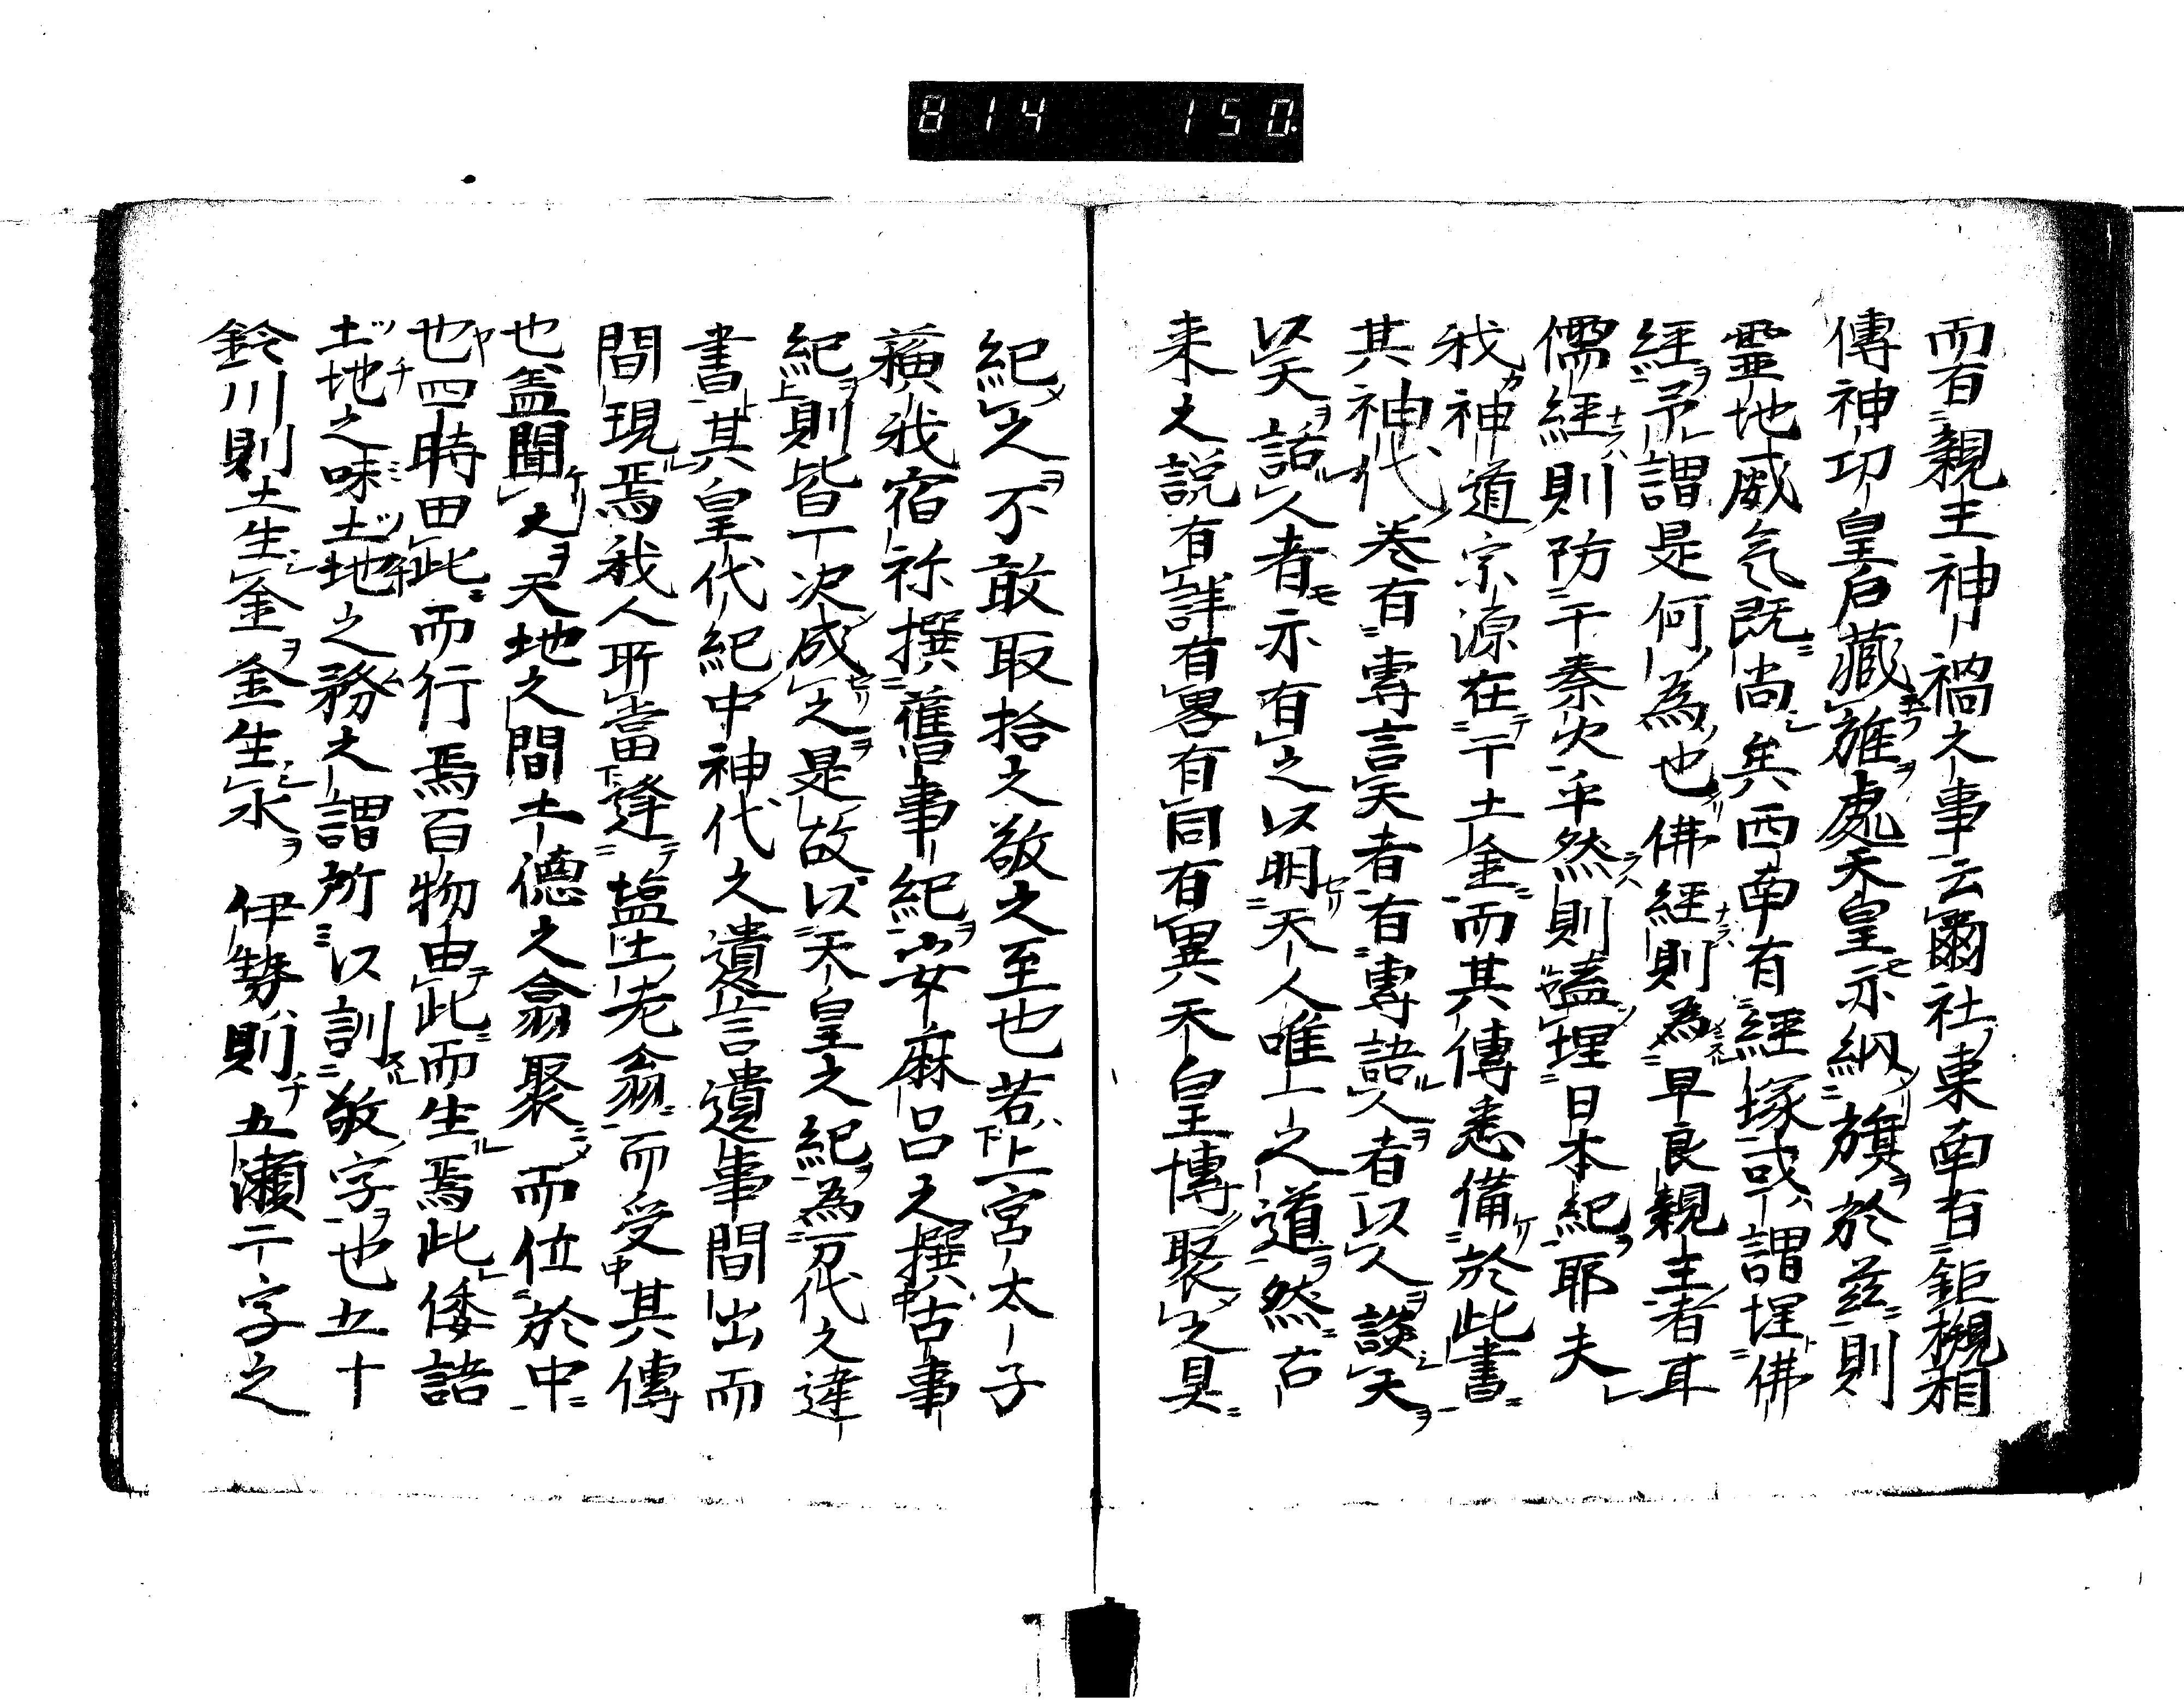 814 150.
而有親王神禍之事云爾社東南有鉅櫬相
傳神功皇后藏旌處天皇亦納旗於茲則
靈地威気既尚矣西南有經塚或謂埋佛
經予謂是何為也佛經則為早良親王者耳
儒經則防于秦火乎然則嗑埋日本紀耶夫
我神道宗源在于土金而其傳悉備於此書
其神代卷有專言天者有專語人者以人談天
以天語人者亦有之以明天人唯一之道然古
来之説有詳有畧有同有異天皇博聚之具
紀之不敢取捨之敬之至也若上宮太子
蘓我宿祢撰舊事紀安麻呂之撰古事
紀則皆一次成之是故以天皇之紀為万代之違
書其皇代紀中神代之遺言遺事間出而
間現焉我人所當逢塩土老翁而受其傳
也盖聞之天地之間土德之翕聚而位於中
也四時由此而行焉百物由此而生焉此倭語
土地之味土地之務之謂所以訓敬字也五十
鈴川則土生金金生水伊勢則五瀬二字之